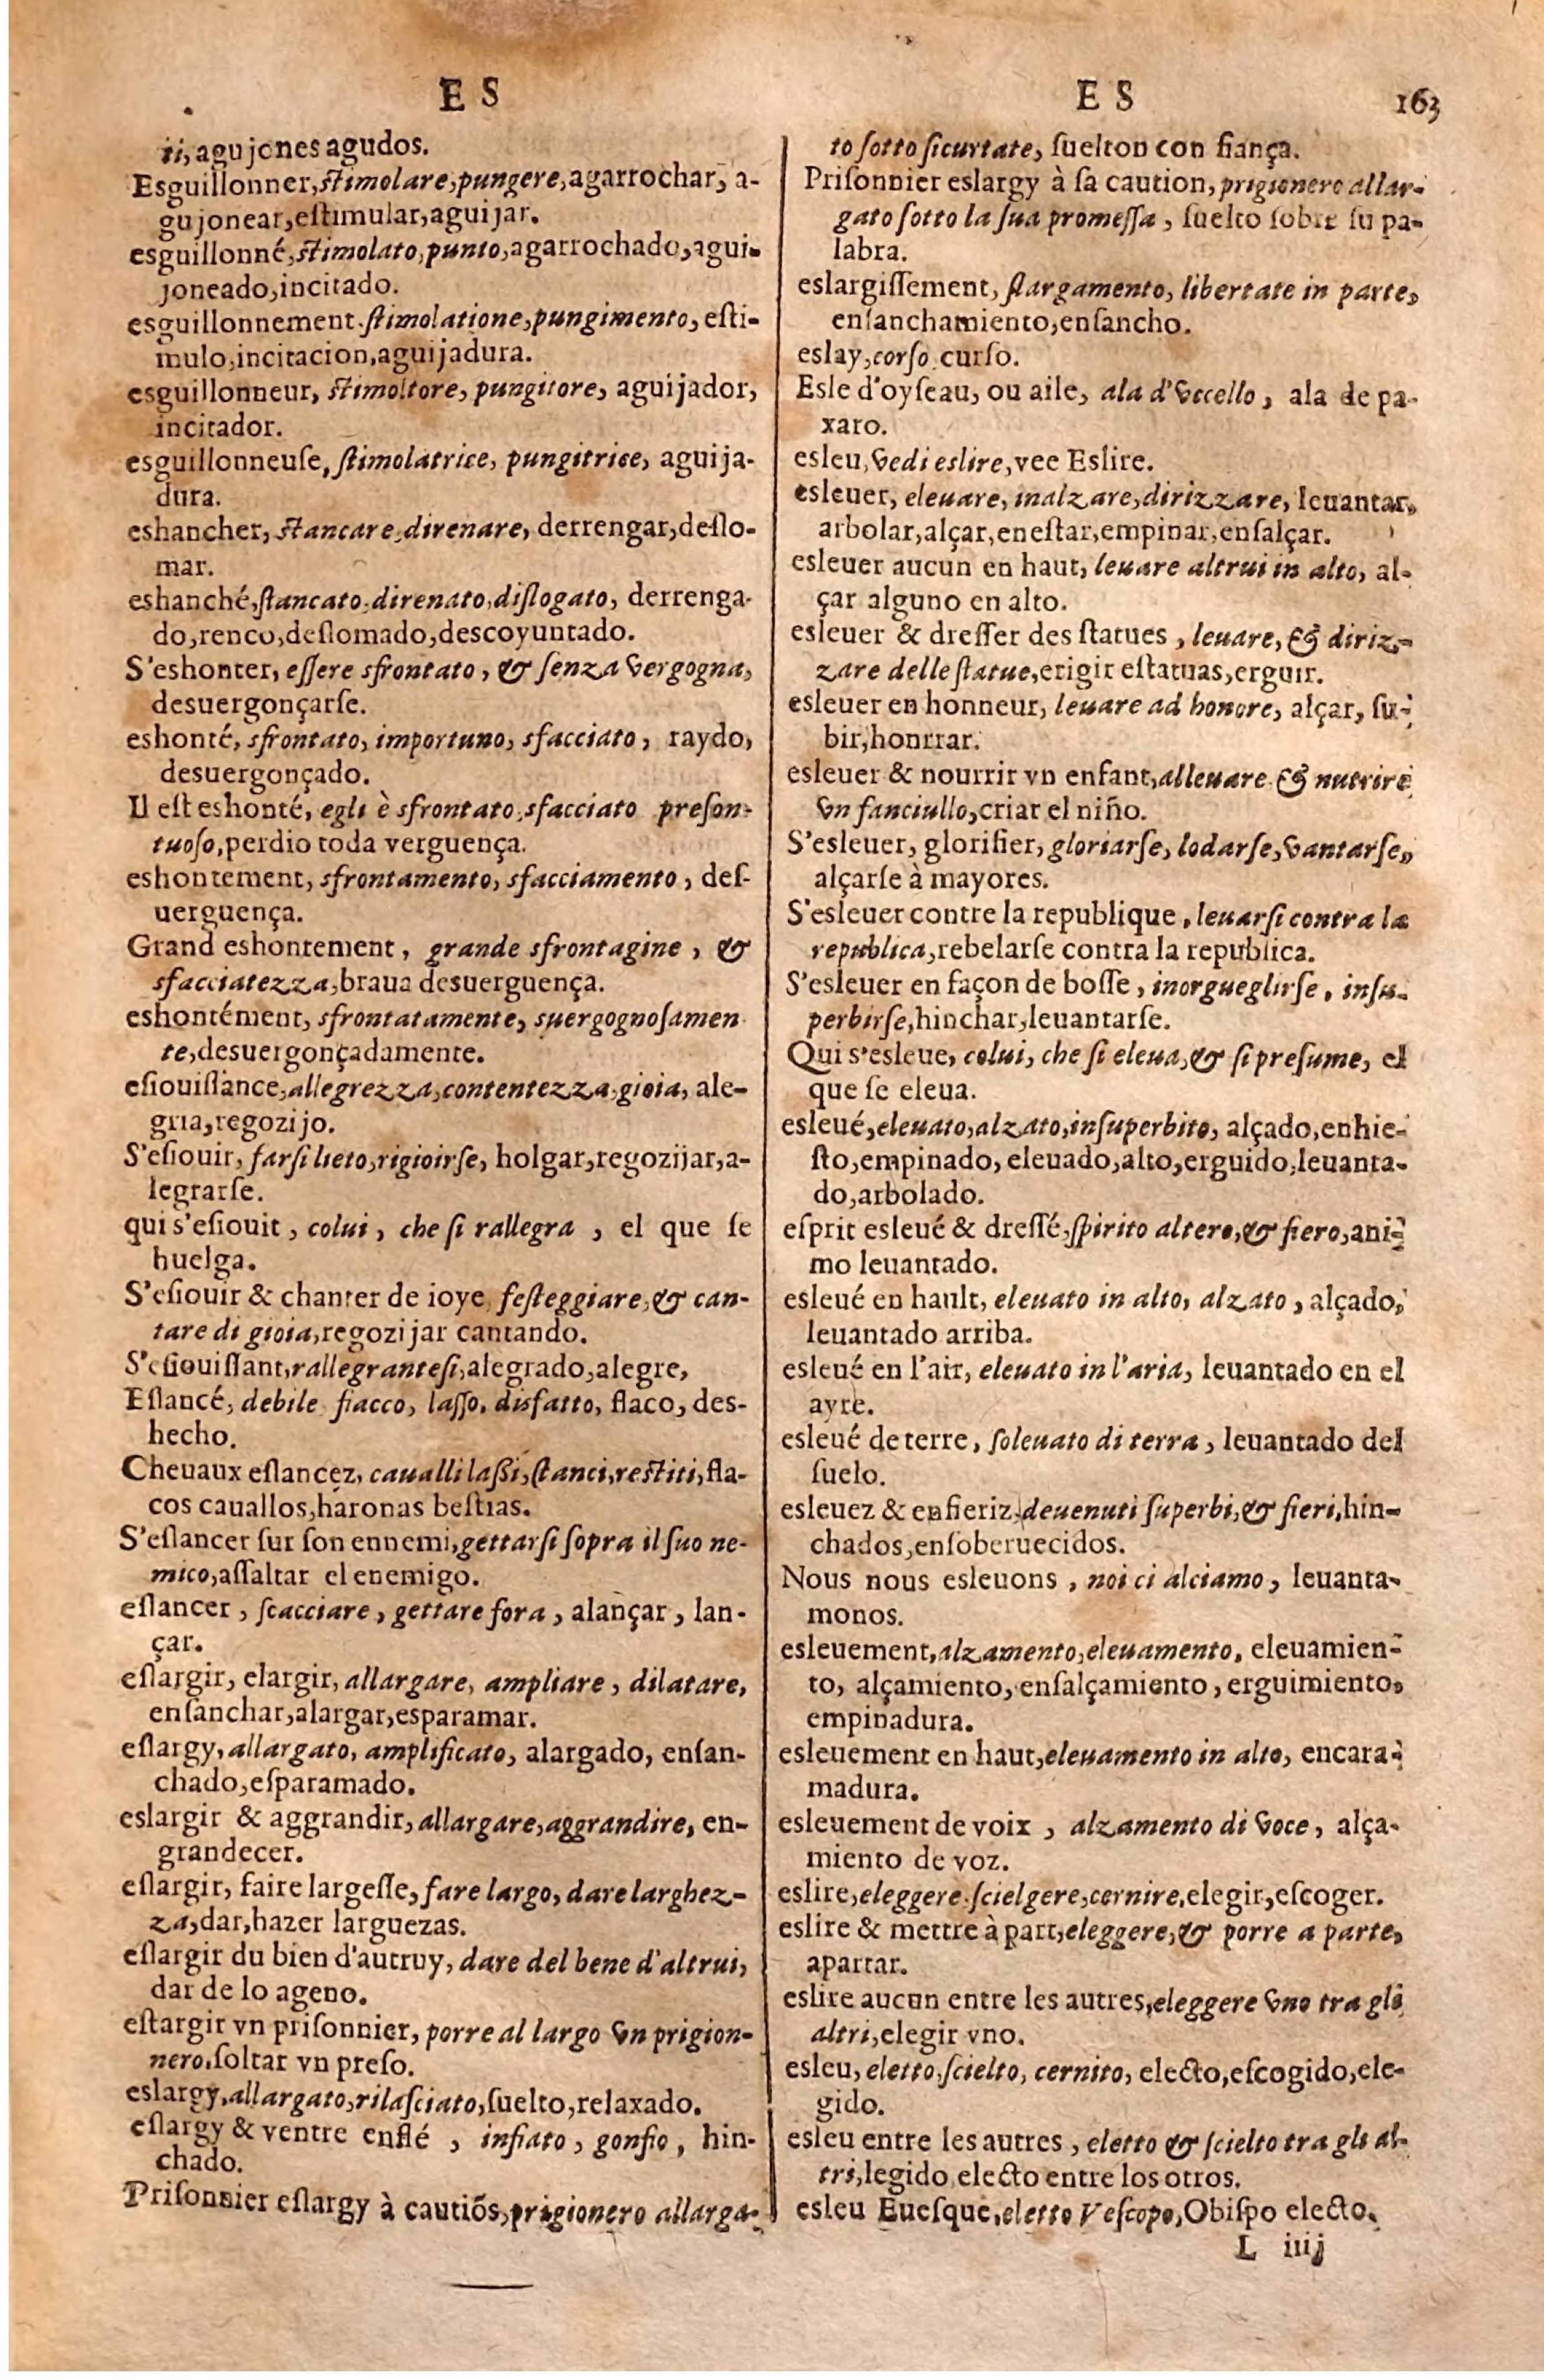 E S
ti, agujones agudos.
Esguillonner, ſtimolare, pungere, agarrochar, a-
gujonear, eſtimular, aguijar.
esguillonné, ſtimolato, punto, agarrochado, agui-
joneado, incitado.
esguillonnement. ſtimolatione, pungimento, eſti-
mulo, incitacion, aguijadura.
esguillonneur, ſtimoltore, pungitore, aguijador,
incitador.
esguillonneuſe, ſtimolatrice, pungitrice, aguija-
dura.
eshancher, ſtancare, direnare, derrengar, deſlo-
mar.
eshanché, ſtancato, direnato, diſlogato, derrenga-
do, renco, deſlomado, descoyuntado.
S'eshonter, eſſere sfrontato, & ſenza vergogna,
desuergonçarſe.
eshonté, sfrontato, importuno, sfacciato, raydo,
desuergonçado.
Il eſt eshonté, egli è sfrontato, sfacciato preſon-
tuoſo, perdio toda verguença.
eshontement, sfrontamento, sfacciamento, deſ-
uerguença.
Grand eshontement, grande sfrontagine, &
sfacciatezza, braua desuerguença.
eshontément, sfrontatamente, suergognoſamen
te, desuergonçadamente.
eſiouiſſance, allegrezza, contentezza, gioia, ale-
gria, regozijo.
S'eſiouir, farſi lieto, rigioirſe, holgar, regozijar, a-
legrarſe.
qui s'eſiouit, colui, che ſi rallegra, el que ſe
huelga.
S'eſiouir & chanter de ioye, feſteggiare, & can-
tare di gioia, regozijar cantando.
S'eſiouiſſant, rallegranteſi, alegrado, alegre,
Eſlancé, debile fiacco, laſſo, disfatto, flaco, des-
hecho.
Cheuaux eſlancez, caualli laßi, ſtanci, reſtiti, fla-
cos cauallos, haronas beſtias.
S'eſlancer ſur ſon ennemi, gettarſi ſopra il ſuo ne-
mico, aſſaltar el enemigo.
eſlancer, ſcacciare, gettare fora, alançar, lan-
çar.
eſlargir, elargir, allargare, ampliare, dilatare,
enſanchar, alargar, esparamar.
eſlargy, allargato, amplificato, alargado, enſan-
chado, eſparamado.
eslargir & aggrandir, allargare, aggrandire, en-
grandecer.
eſlargir, faire largeſſe, fare largo, dare larghez-
za, dar, hazer larguezas.
eſlargir du bien d'autruy, dare del bene d'altrui,
dar de lo ageno.
eſtargir vn priſonnier, porre al largo vn prigion-
nero, ſoltar vn preſo.
eslargy, allargato, rilaſciato, ſuelto, relaxado.
eſlargy & ventre enflé, infiato, gonfio, hin-
chado.
Priſonnier eſlargy à cautiõs, prigionero allarga-
E S 163
to ſotto ſicurtate, ſuelton con fiança.
Priſonnier eslargy à ſa caution, prigionero allar-
gato ſotto la ſua promeſſa, ſuelto ſobre ſu pa-
labra.
eslargiſſement, ſlargamento, libertate in parte,
enſanchamiento, enſancho.
eslay, corſo, curſo.
Esle d'oyſeau, ou aile, ala d'vccello, ala de pa-
xaro.
esleu, vedi eslire, vee Eslire.
esleuer, eleuare, inalzare, dirizzare, leuantar,
arbolar, alçar, eneſtar, empinar, enſalçar.
esleuer aucun en haut, leuare altrui in alto, al-
çar alguno en alto.
esleuer & dreſſer des ſtatues, leuare, & diriz-
zare delle ſtatue, erigir eſtatuas, erguir.
esleuer en honneur, leuare ad honore, alçar, ſu-
bir, honrrar.
esleuer & nourrir vn enfant, alleuare & nutrire
vn fanciullo, criar el niño.
S'esleuer, glorifier, gloriarſe, lodarſe, vantarſe,
alçarſe à mayores.
S'esleuer contre la republique, leuarſi contra la
republica, rebelarſe contra la republica.
S'esleuer en façon de boſſe, inorgueglirſe, inſu-
perbirſe, hinchar, leuantarſe.
Qui s'esleue, colui, che ſi eleua, & ſi preſume, el
que ſe eleua.
esleué, eleuato, alzato, inſuperbito, alçado, enhie-
ſto, empinado, eleuado, alto, erguido, leuanta-
do, arbolado.
eſprit esleué & dreſſé, ſpirito altero, & fiero, ani-
mo leuantado.
esleué en hault, eleuato in alto, alzato, alçado,
leuantado arriba.
esleué en l'air, eleuato in l'aria, leuantado en el
ayre.
esleué de terre, ſoleuato di terra, leuantado del
ſuelo.
esleuez & enfieriz, deuenuti ſuperbi, & fieri, hin-
chados, enſoberuecidos.
Nous nous esleuons, noi ci alciamo, leuanta-
monos.
esleuement, alzamento, eleuamento, eleuamien-
to, alçamiento, enſalçamiento, erguimiento,
empinadura.
esleuement en haut, eleuamento in alto, encara-
madura.
esleuement de voix, alzamento di voce, alça-
miento de voz.
eslire, eleggere, ſcielgere, cernire, elegir, eſcoger.
eslire & mettre à part, eleggere, & porre a parte,
apartar.
eslire aucun entre les autres, eleggere vno tra gli
altri, elegir vno.
esleu, eletto, ſcielto, cernito, electo, eſcogido, ele-
gido.
esleu entre les autres, eletto & ſcielto tra gli al-
tri, legido electo entre los otros.
esleu Eueſque, eletto Veſcopo, Obiſpo electo.
L iiij